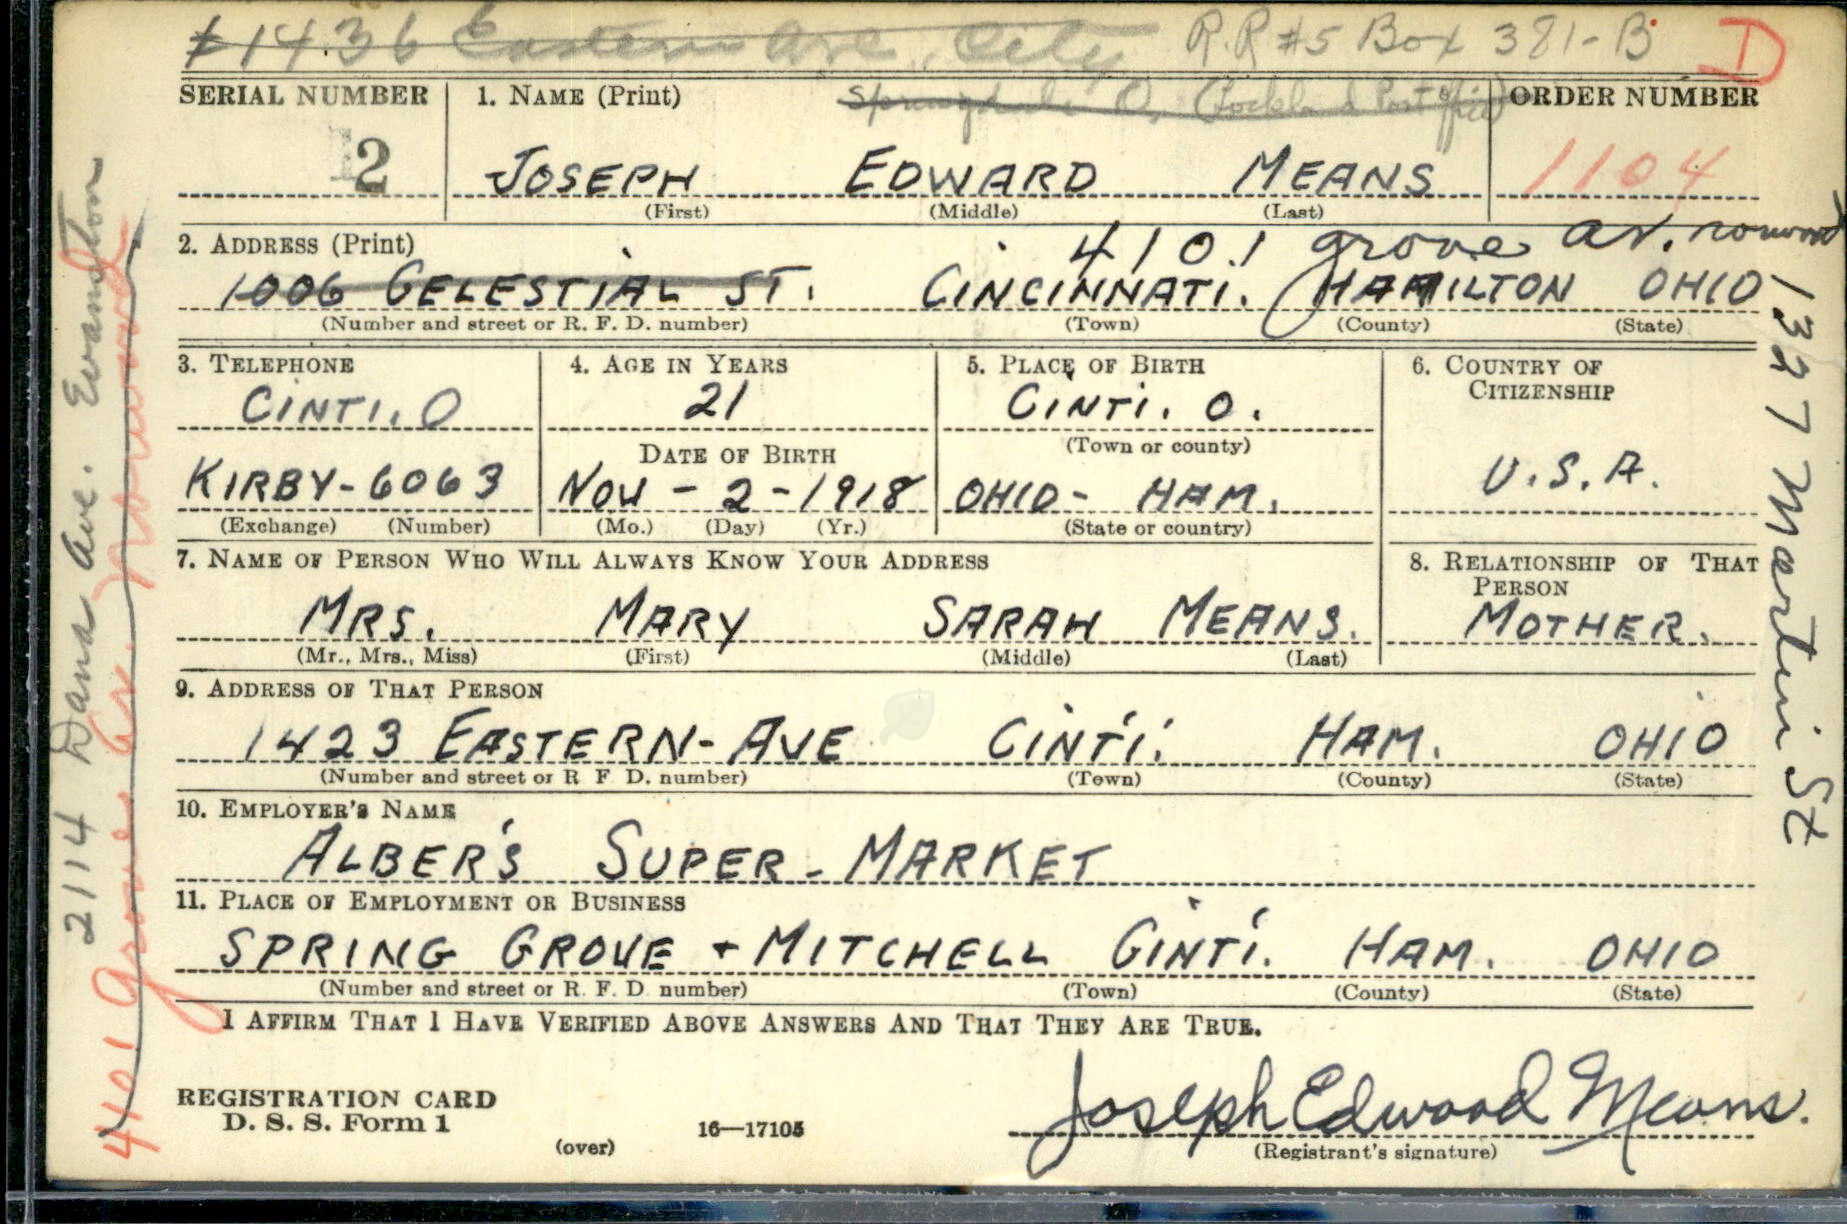 #1436 Eastern Ave, City R.R #5 Box 381-B D
Springdale O. (Lockland Post Office)
SERIAL NUMBER 1. NAME (Print) ORDER NUMBER
2 JOSEPH EDWARD MEANS 1104
(First) (Middle) (Last)
2. ADDRESS (Print) 4101 Grove Av. Norwood
1006 CELESTIAL ST. CINCINNATI. HAMILTON OHIO
(Number and street or R. F. D. number) (Town) (County) (State)
3. TELEPHONE 4. AGE IN YEARS 5. PLACE OF BIRTH 6. COUNTRY OF
CITIZENSHIP
CINTI. O 21 CINTI. O.
DATE OF BIRTH (Town or county)
KIRBY-6063 NOV - 2 - 1918 OHIO - HAM. U.S.A.
(Exchange) (Number) (Mo.) (Day) (Yr.) (State or country)
7. NAME OF PERSON WHO WILL ALWAYS KNOW YOUR ADDRESS 8. RELATIONSHIP OF THAT
PERSON
MRS. MARY SARAH MEANS. MOTHER.
(Mr., Mrs., Miss) (First) (Middle) (Last)
9. ADDRESS OF THAT PERSON
1423 EASTERN-AVE CINTI. HAM. OHIO
(Number and street or R F D. number) (Town) (County) (State)
10. EMPLOYER'S NAME
ALBER'S SUPER-MARKET
11. PLACE OF EMPLOYMENT OR BUSINESS
SPRING GROVE + MITCHELL CINTI. HAM. OHIO
(Number and street or R. F. D. number) (Town) (County) (State)
I AFFIRM THAT I HAVE VERIFIED ABOVE ANSWERS AND THAT THEY ARE TRUE.
Joseph Edward Means.
REGISTRATION CARD
D. S. S. Form 1 16—17105
(over) (Registrant's signature)
2114 Dana Ave. Evanston
4101 Grove Av. Norwood
1327 Martin St